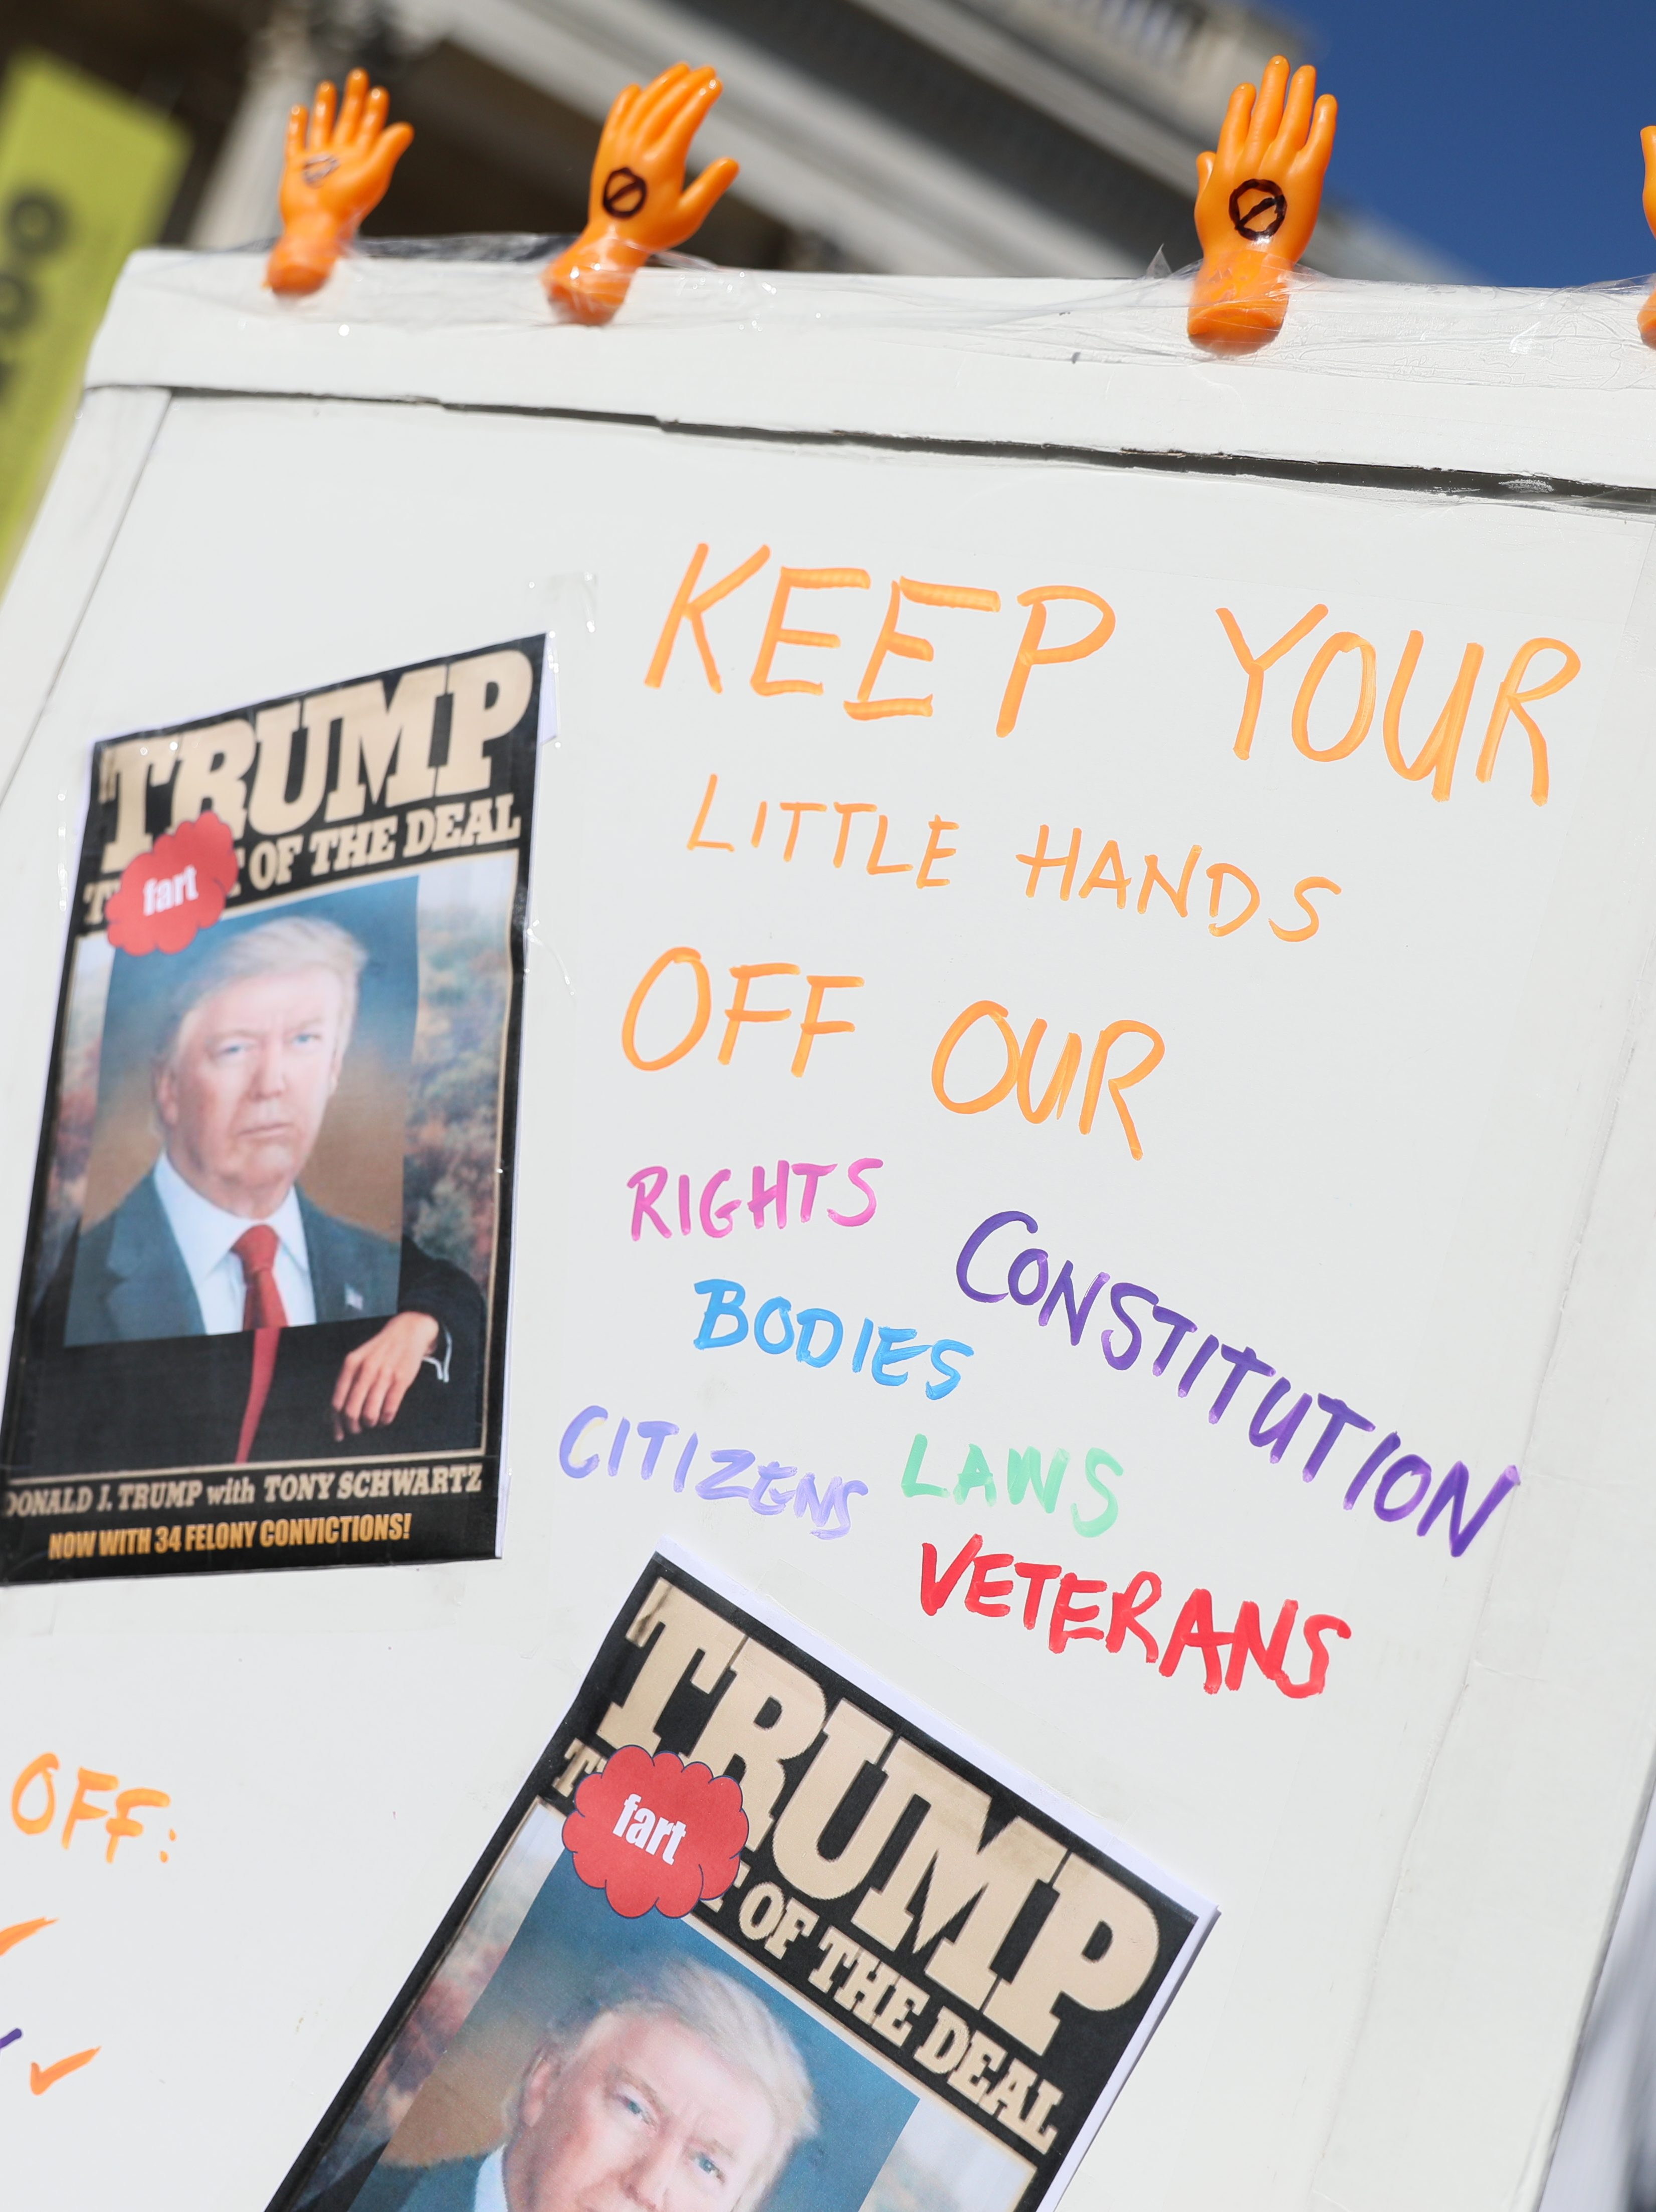 KEEP YOUR
LITTLE HANDS
OFF OUR
RIGHTS
CONSTITUTION
BODIES
CITIZENS
LAWS
VETERANS
TRUMP
fart
OF THE DEAL
DONALD J. TRUMP with TONY SCHWARTZ
NOW WITH 34 FELONY CONVICTIONS!
OFF:
TRUMP
fart
OF THE DEAL